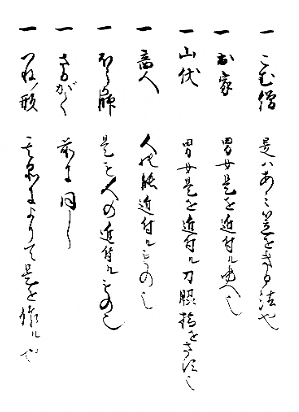 一 こむ僧 是ハあミ笠をきる法也
一 出家 男女是を近付ルゆへ也
一 山伏 男女是を近付ル刀脇指をさす也
一 商人 人の能近付ルもの也
一 ほうか師 是も人の近付ルもの也
一 さるがく 前に同し
一 つねノ形 によりて是を作ル